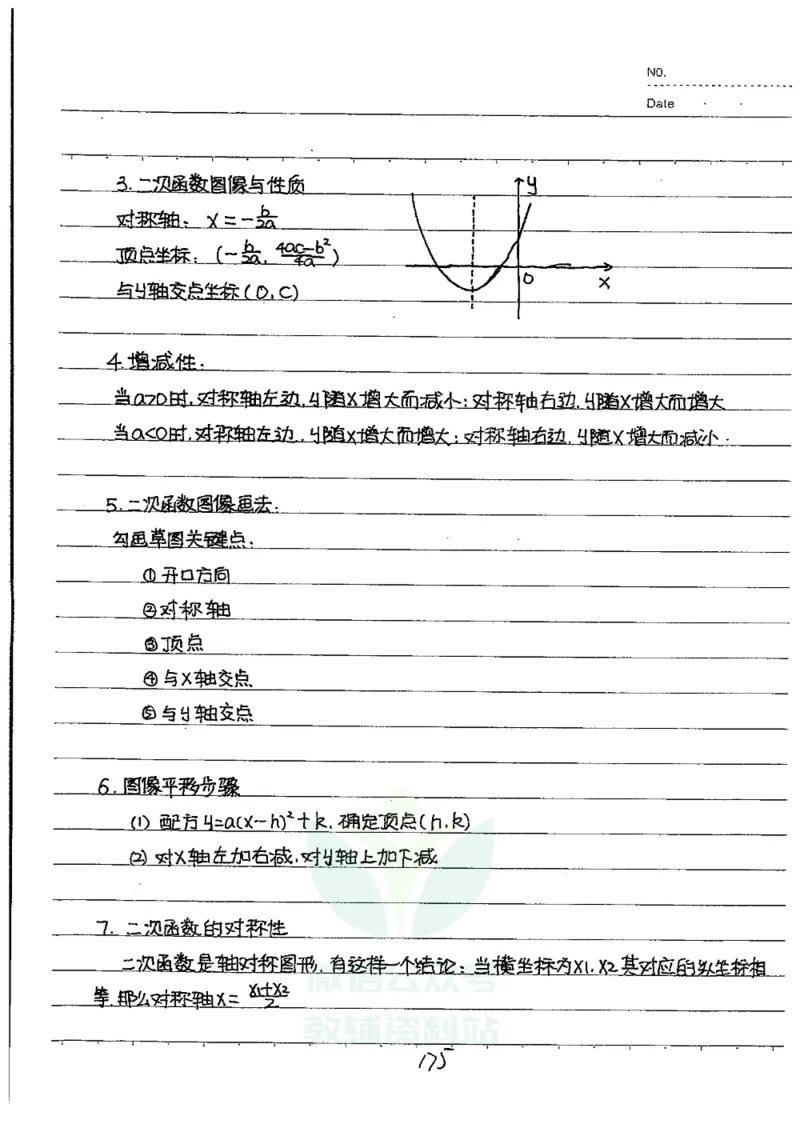 NO.
Date
3.二次函数图像与性质
对称轴：x=-b/2a
顶点坐标：(-b/2a, 4ac-b²/4a)
与y轴交点坐标(0,C)
y
0
x
4.增减性：
当a>0时,对称轴左边,y随x增大而减小;对称轴右边,y随x增大而增大
当a<0时,对称轴左边,y随x增大而增大;对称轴右边,y随x增大而减小.
5.二次函数图像画法:
勾画草图关键点:
①开口方向
②对称轴
③顶点
④与x轴交点
⑤与y轴交点
6.图像平移步骤
(1) 配方y=a(x-h)²+k,确定顶点(h,k)
(2) 对x轴左加右减,对y轴上加下减
7. 二次函数的对称性
二次函数是轴对称图形,有这样一个结论:当横坐标为x1,x2其对应的纵坐标相
等,那么对称轴x=x1+x2/2
微信公众号
教辅资料站
175